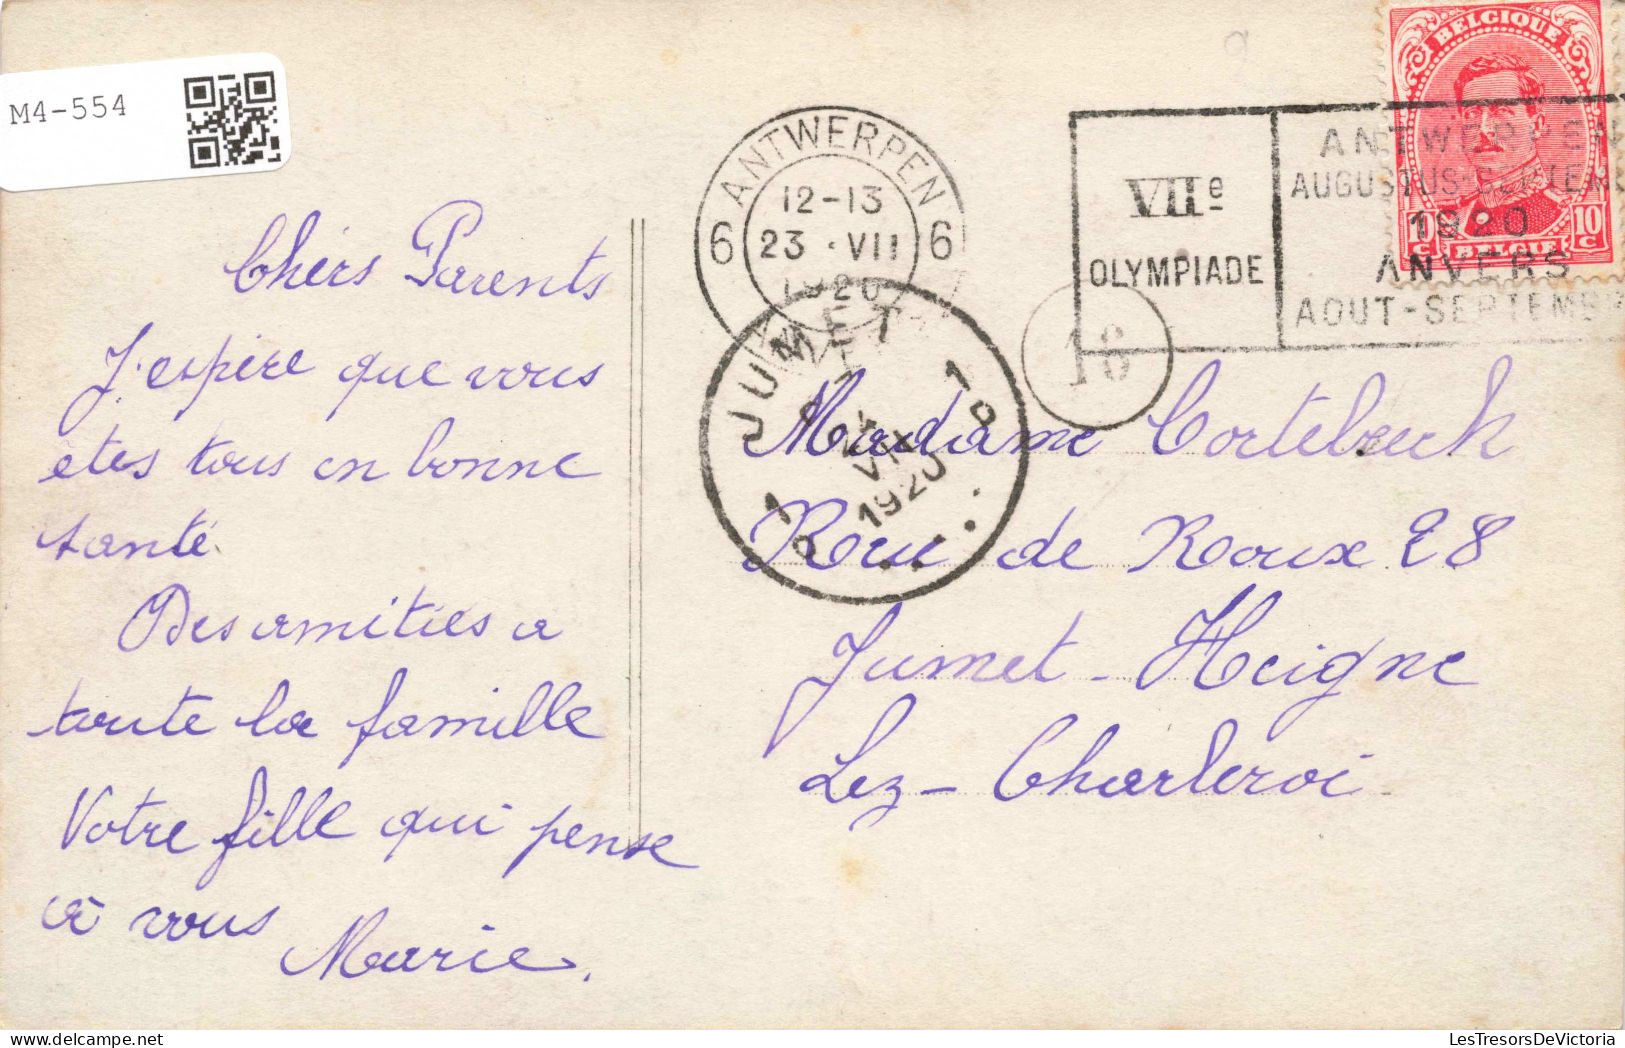 M4-554
Chers Parents
J'espère que vous
êtes tous en bonne
santé.
Des amitiés a
toute la famille
Votre fille qui pense
à vous
Marie.
6 ANTWERPEN 6
12-13
23 · VII
1920
VIIe
OLYMPIADE
ANTWERPEN
AUGUSTUS-SEPTEMB
1920
ANVERS
AOUT-SEPTEMBR
BELGIQUE
10 C
10 C
BELGIË
16
JUMET 1
1920
Madame Cortebeeck
Rue de Roux 28
Jumet - Heigne
Lez - Charleroi
LesTresorsDeVictoria